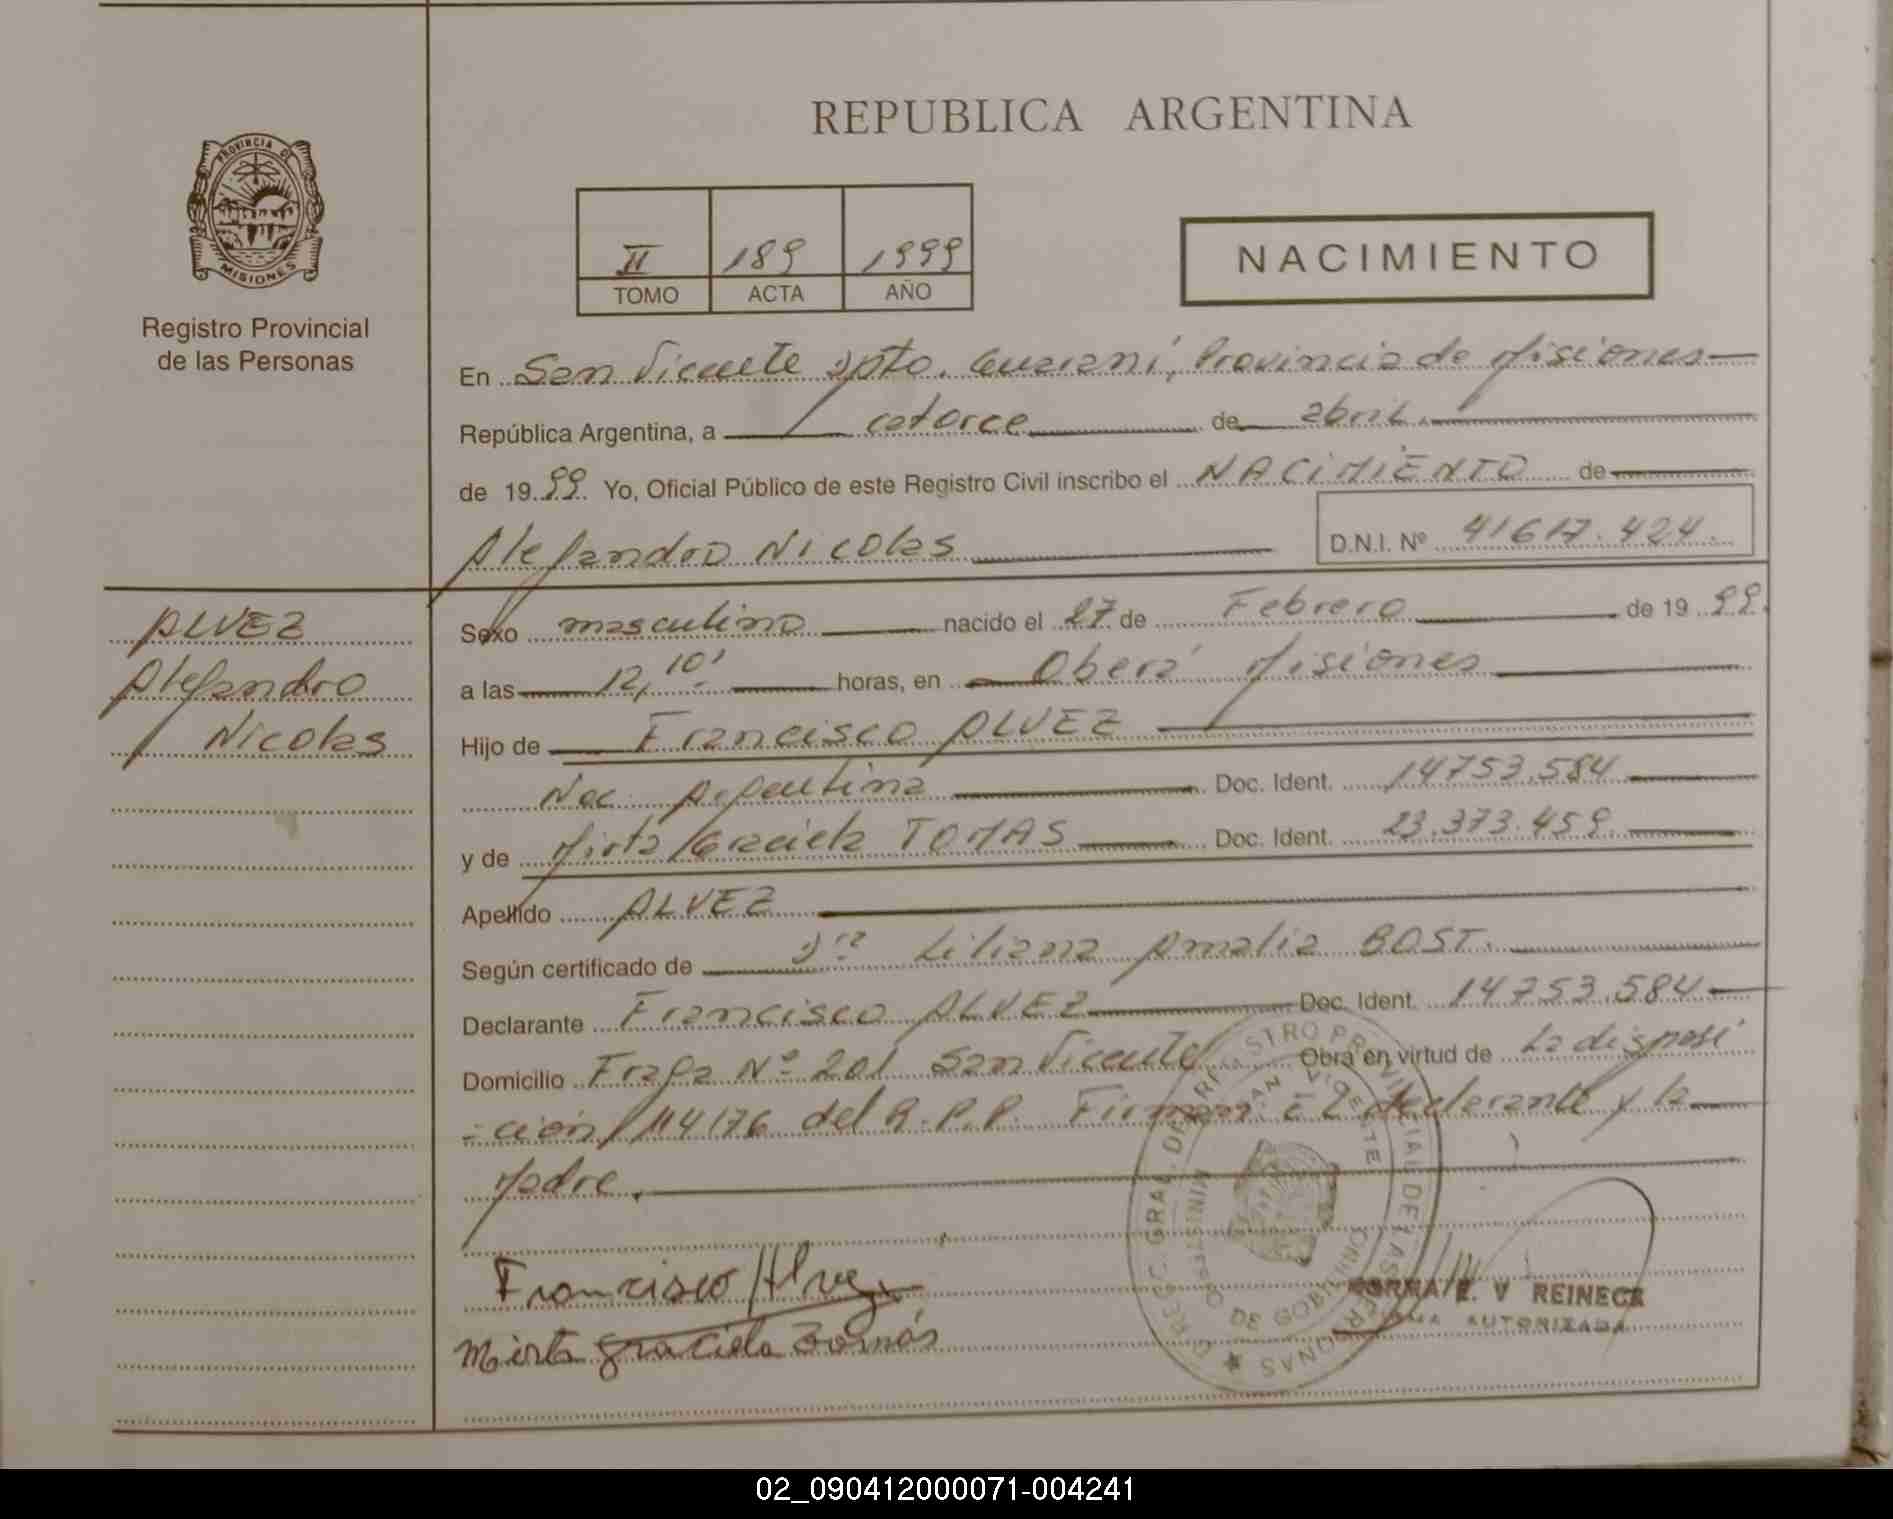 REPUBLICA ARGENTINA
PROVINCIA DE MISIONES
Registro Provincial
de las Personas
II 189 1999
TOMO ACTA AÑO
NACIMIENTO
En San Vicente Dpto. Guaraní, Provincia de Misiones
República Argentina, a catorce de abril
de 1999. Yo, Oficial Público de este Registro Civil inscribo el NACIMIENTO de
Alejandro Nicolas D.N.I. Nº 41617.424.
ALVEZ
Alejandro
Nicolas
Sexo masculino nacido el 27 de Febrero de 1999.
a las 12,10' horas, en Oberá Misiones
Hijo de Francisco ALVEZ
Nac. Argentina Doc. Ident. 14753.584
y de Mirta Graciela TOMAS Doc. Ident. 23.373.459
Apellido ALVEZ
Según certificado de Dra Liliana Amalia BOST.
Declarante Francisco ALVEZ Doc. Ident. 14753.584
Domicilio Fraga Nº 201 San Vicente Obra en virtud de La disposi
-ción 114/76 del R.P.P. Firman: El declarante y la
Madre.
Francisco Alvez
Mirta Graciela Tomás
REG. GRAL. DEL REGISTRO PROVINCIAL DE LAS PERSONAS
SAN VICENTE
MINISTERIO DE GOBIERNO
NORMA E. V REINECK
FIRMA AUTORIZADA
02_090412000071-004241